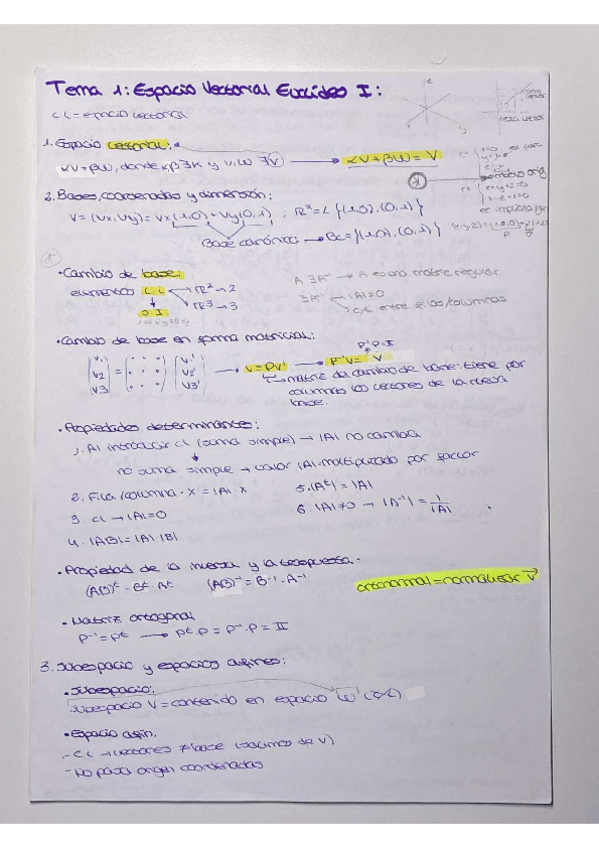 Tema 1: Espacio Vectorial Euclídeo I:
CL = espacio vectorial
1. Espacio vectorial:
αV+βW, donde α,β∃K y v,w ∃V → αV+βW = V
2. Bases, coordenadas y dimensión:
V = (Vx,Vy) = Vx(1,0) + Vy(0,1) ; ℝ²=L{(1,0),(0,1)}
Base canónica → Bc={(1,0),(0,1)}
• Cambio de base:
elementos C.L → ℝ² → 2
ℝ³ → 3
A ∃A⁻¹ → A es una matriz regular
∄A⁻¹ → |A|=0
→ CL entre filas/columnas
• Cambio de base en forma matricial:
P⁻¹·P=II
(V1 V2 V3) = (· · ·) (V1' V2' V3') → V=PV' → P⁻¹V=V'
→ matriz de cambio de base: tiene por
columnas los vectores de la nueva
base.
• Propiedades determinantes:
1. Al introducir CL (suma simple) → |A| no cambia
no suma simple → valor |A|=multiplicado por factor
2. Fila/columna · X = |A| · X
5. (Aᵗ) = |A|
3. CL → |A|=0
6. |A|≠0 → |A⁻¹| = 1/|A|
4. |AB|=|A|·|B|
• Propiedad de la inversa y la traspuesta.
(AB)ᵗ = Bᵗ·Aᵗ (AB)⁻¹ = B⁻¹·A⁻¹
ortonormal = normalizar V
• Matriz ortogonal
P⁻¹=Pᵗ → Pᵗ·P = P⁻¹·P = II
3. Subespacio y espacios afines:
• Subespacio:
Subespacio V = contenido en espacio W
• Espacio afín.
- CL → vectores ≠ base (salimos de V)
- No pasa origen coordenadas